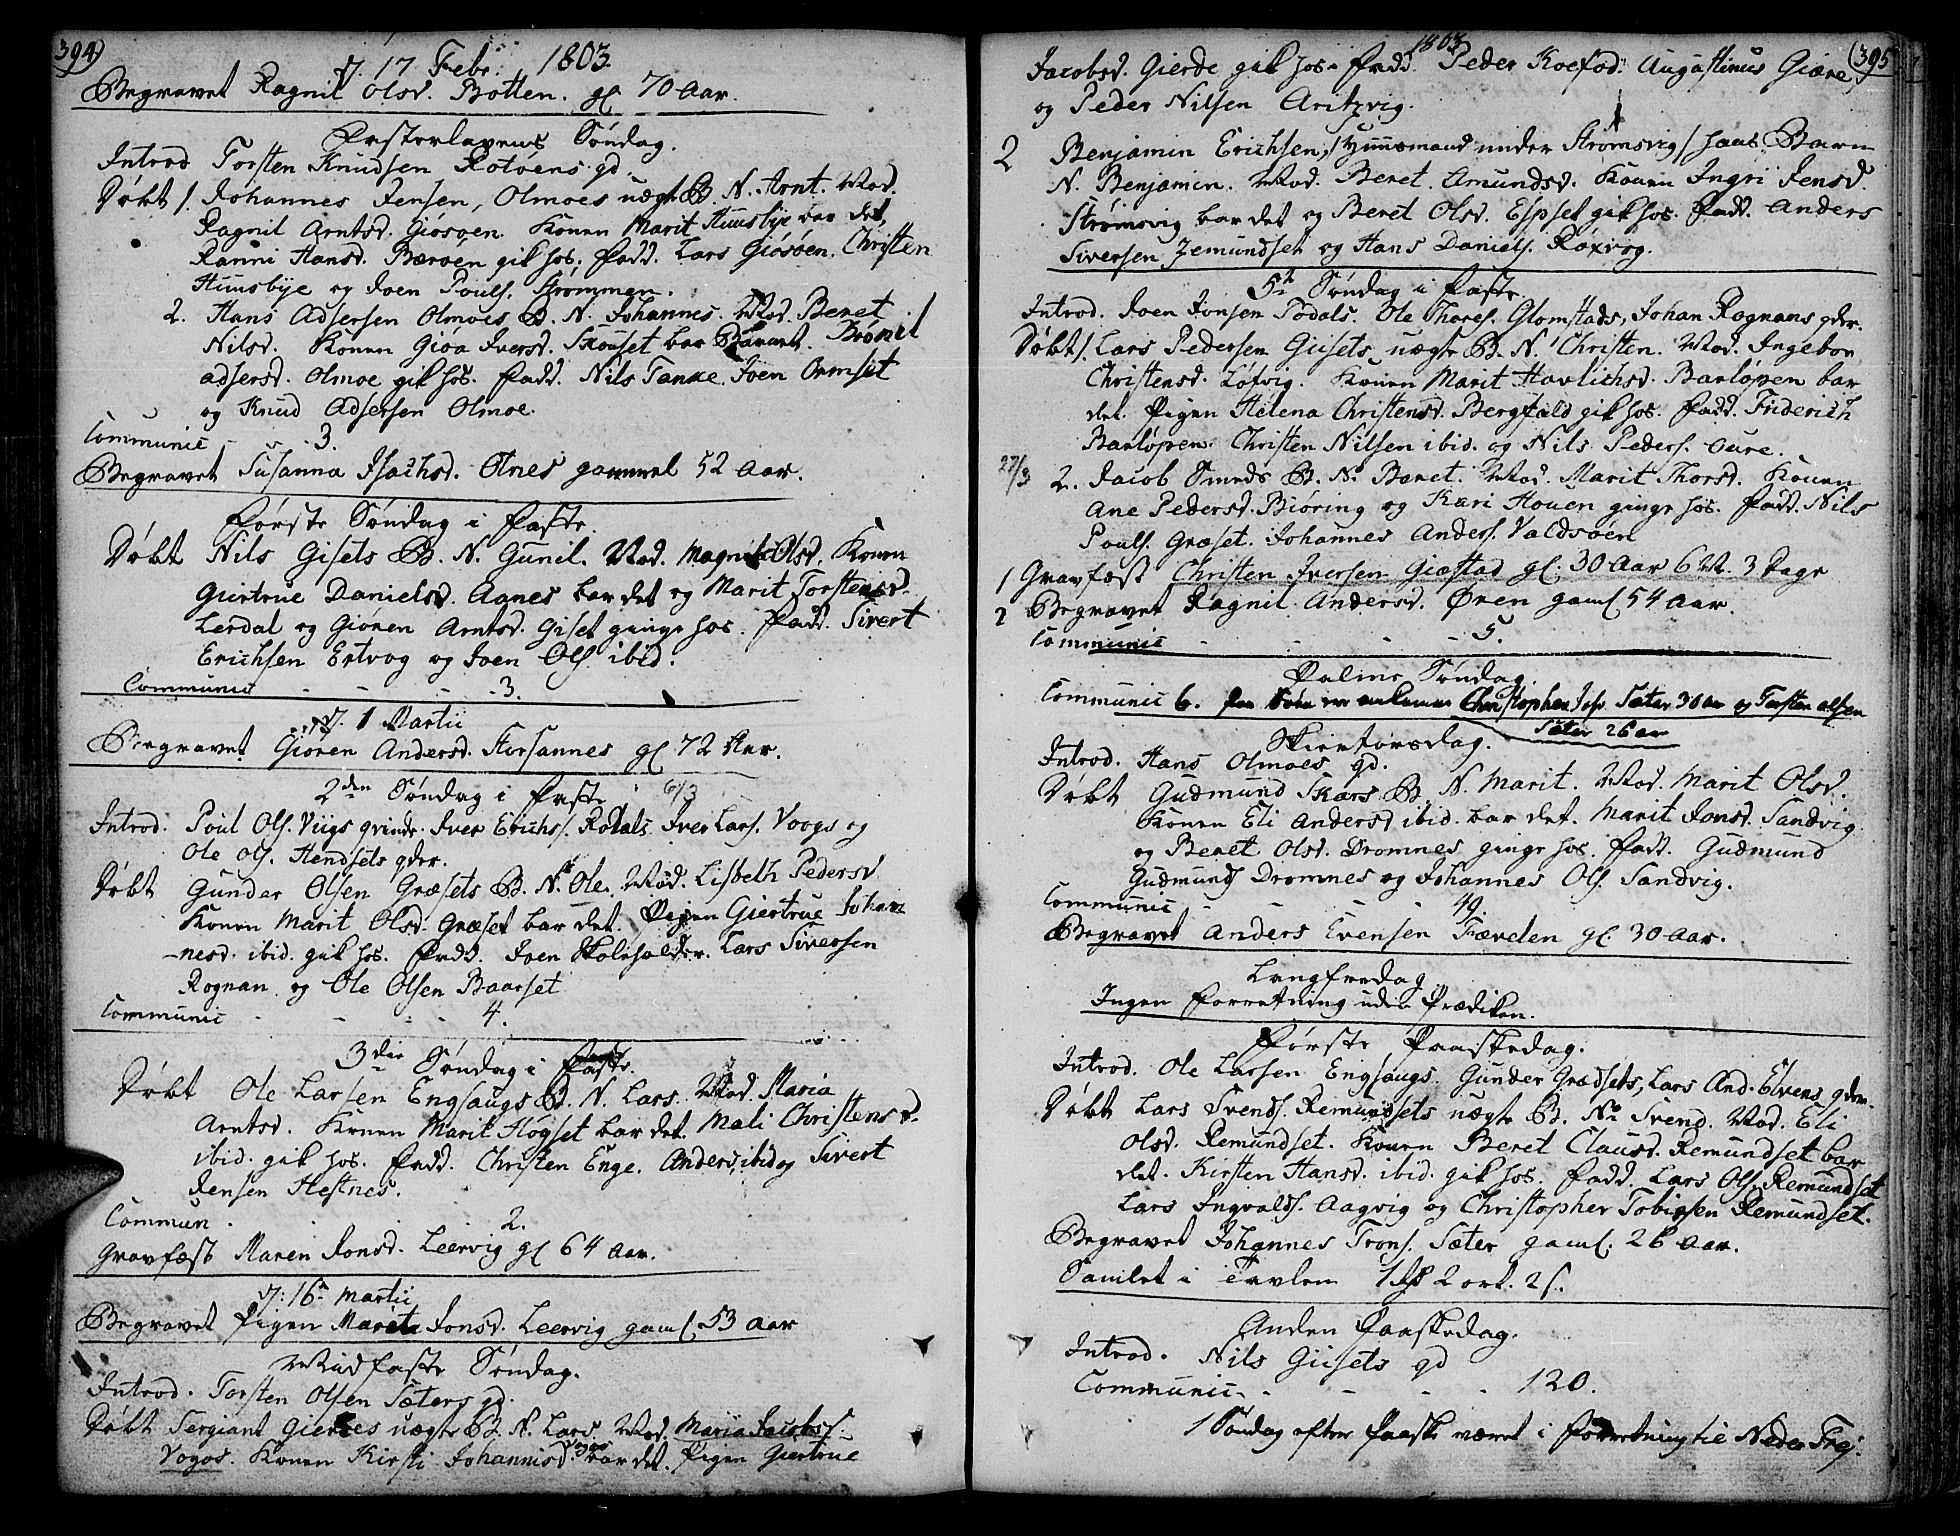 394)
d. 17 Febr. 1803.
Begravet Ragnil Olsd. Botten. gl 70 Aar.
Fasterlavens Søndag.
Introd Torsten Knudsen Rotøens qd.
Døbt 1. Johannes Jensen, Olmoes uægte B. N. Arnt. Mod.
Ragnil Arntsd. Giøsøen. Konen Marit Huusbye bar det,
Ranni Hansd. Bærøen gik hos. Fadd. Lars Giøsøen. Christen
Huusbye og Joen Pouls. Strømmen.
2. Hans Adsersen Olmoes B. N. Johannes. Mod. Beret
Nilsd. Konen Gioa Iversd. Skouset bar Barnet. Brønil
adsersd. Olmoe gik hos. Fadd. Nils Tanke. Joen Ormset
og Knud Adsersen Olmoe.
Communic - - - 3.
Begravet Susanna Isachsd. Otnes gammel 52 Aar.
Første Søndag i Faste.
Døbt Nils Gisets B. N. Gunil. Mod. Magnil Olsd. Konen
Giertrue Danielsd. Agnes bar det og Marit Torstensd.
Lerdal og Giønen Arntsd. Giset ginge hos. Fadd. Sivert
Erichsen Ertvog og Joen Ols. ibid.
Communic - - - - 3.
d. 1 Martii
Begravet Giønen Andersd. Storsannes gl 72 Aar.
2den Søndag i Faste 6/3
Introd. Poul Ols. Viigs qvinde. Iver Erichs. Rodals. Iver Lars. Voogs og
Ole Ols. Hendsets qder.
Døbt Gunder Olsen Græsets B. N. Ole. Mod. Lisbeth Pedersd
Konen Marit Olsd. Græset bar det. Pigen Giertrue Johan
nesd. ibid. gik hos. Fadd. Joen Skoleholder. Lars Siversen
Rognan og Ole Olsen Baarset
Communic - - - - 4.
3die Søndag i Faste.
Døbt Ole Larsen Engsaugs B. N. Lars. Mod. Maria
Arntsd. Konen Marit Høgset bar det. Mali Christensd.
ibid. gik hos. Fadd. Christen Enge. Anders ibid og Sivert
Jensen Hestnes.
Commun. . . . 2.
Gravfæst Maren Jonsd. Leervig gl 64 Aar.
d: 16 Martii
Begravet Pigen Marete Jonsd. Leervig gaml. 53 Aar
Midfaste Søndag.
Introd. Torsten Olsen Sæters qd.
Døbt Sergiant Gierdes uægte B. N. Lars. Mod. Maria Jacobs
Vogos. Konen Kirsti Johannisd. bar det. Pigen Giertrue
1803
(395
Jacobsd. Gierde gik hos. Fadd. Peder Koefod. Augustinus Giære,
og Peder Nilsen Aritzvig.
2 Benjamin Erichsen, /Huusmand under Strømsvig/ hans Barn
N. Benjamin. Mod. Beret. Amundsd. Konen Ingri Jensd.
Strømsvig bar det og Beret Olsd. Espset gik hos. Fadd. Anders
Siversen Zemundset og Hans Daniels. Roxvog.
5te Søndag i Faste.
Introd. Joen Jonsen Todals. Ole Thores. Glomstads, Johan Rognans qder.
Døbt 1. Lars Pedersen Giisets uægte B. N. Christen. Mod. Ingebor
Christensd. Løfvig. Konen Marit Havlichsd. Barløpen bar
det. Pigen Helena Christensd. Bergfald gik hos. Fadd. Friderich
Barløpen. Christen Nilsen ibid. og Nils Peders. Aure.
27/3
2. Jacob Smeds B. N. Beret. Mod. Marit Thorsd. Konen
Ane Pedersd. Biøring og Kari Houen ginge hos. Fadd. Nils
Pouls. Græset. Johannes Anders. Valdsøen
1 Gravfæst Christen Iversen Giæstad gl: 30 Aar 6 M. 3 Dage
2 Begravet Ragnil Andersd. Ønen gaml 54 Aar.
Communic - - - - 5.
Palme Søndag.
Communic 6. Christopher Sæter 30 Aar og Torsten Olsen
Sæter 26 ar
Skiertorsdag.
Introd. Hans Olmoes qd.
Døbt Gudmund Skars B. N. Marit. Mod. Marit Olsd.
Konen Eli Andersd ibid. bar det. Marit Jonsd. Sandvig
og Beret Olsd. Dromnes ginge hos. Fadd. Gudmund
Gudmunds Dromnes og Johannes Ols. Sandvig.
Communic - - - - 49.
Begravet Anders Evensen Fævelen gl. 30 Aar.
Langfredag
Ingen Forretning uden Prædiken.
Første Paaskedag.
Introd. Ole Larsen Engsaugs. Gunder Grædsets, Lars And. Elvens qder.
Døbt Lars Svends. Remundsets uægte B. No Svend. Mod. Eli
Olsd. Remundset. Konen Beret Clausd. Remundset bar
det. Kirsten Hansd. ibid. gik hos. Fadd. Lars Ols. Remundset
Lars Ingvalds. Aagvig og Christopher Tobiesen Remundset.
Begravet Johannes Trons. Sæter gaml. 26 Aar.
Samlet i Tavlen 1 Rd 2 ort. 2 s.
Anden Paaskedag.
Introd. Nils Giisets qd
Communic - - - - 120.
1 Søndag efter Paaske været i Forretning til Neder Frej.